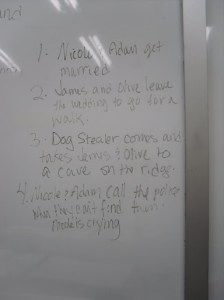 and
1. Nicole & Adam get
married
2. James and Olive leave
the wedding to go for a
walk.
3. Dog Stealer comes and
takes James & Olive to
a cave on the ridge.
4. Nicole & Adam call the police
when they can't find them.
Nicole is crying